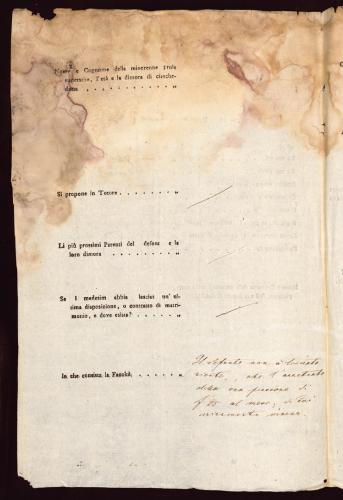 Nome e Cognome della minorenne prole
superstite, l'età e la dimora di ciasche-
duna . . . . . . . . . . . . „
Si propone in Tutore . . . . . . . . „
Li più prossimi Parenti del defunt e la
loro dimora . . . . . . . . . . „
Se i medesim abbia lasciat un' ul-
tima disposizione, o contratto di matri-
monio, e dove esiste? . . . . . . . „
In che consista la Facoltà . . . . . . „
Il defunto non à lasciato
niente, che l'arretrato
della sua pensione di
f al mese, di cui
miseramente viveva.